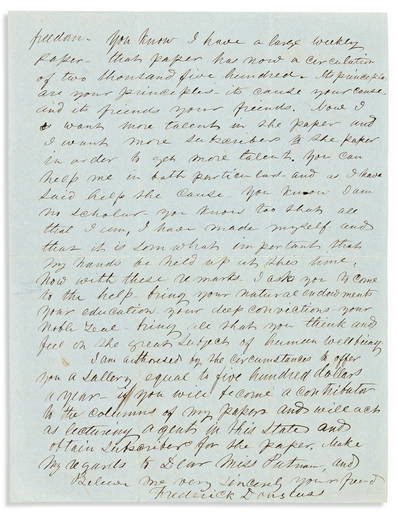 freedom - You know I have a large weekly
paper - that paper has now a circulation
of two thousand five hundred - Its principles
are your principles its cause your cause
and its friends your friends. Now I
want more talent in the paper and
I want more subscribers to the paper
in order to get more talent. You can
help me in both particulars and as I have
said help the cause. You know I am
no scholar - you know too that all
that I am, I have made myself and
that it is somwhat important that
my hands be held up at this time,
now with these remarks I ask you to come
to the help - bring your natural endowments
your education your deep convictions your
noble zeal - bring all that you think and
feel in the great subject of human wellbeing
I am authorised by the circumstances to offer
you a sallery equal to five hundred dollars
a year - if you will become a contributor
to the columns of my paper and will act
as lecturing agent in this State and
obtain subscribers for the paper. Make
my regards to Dear Miss Putnam, and
Believe me very sincerely your friend
Frederick Douglass